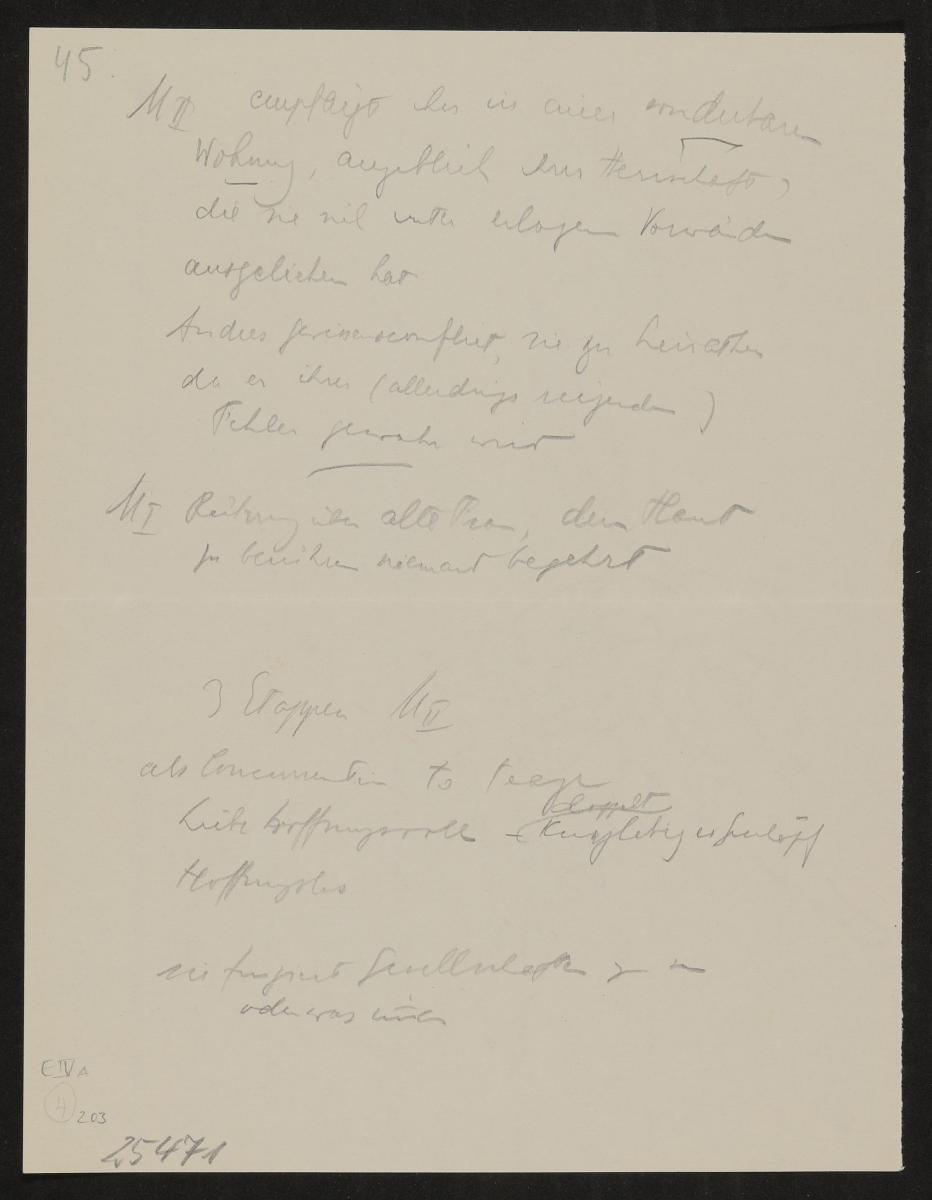 45.
M II empfängt ihn in einer sonderbaren
Wohnung, angeblich ihrer Herrschaft,
die sie sich unter erlogenen Vorwänden
ausgeliehen hat
Andres Gewissensconflict, sie zu heirathen
da er ihrer (allerdings reizenden)
Fehler gewahr wird
M I Rührung über alte Frau, deren Hand
zu berühren niemand begehrt
3 Etappen M II
als Concurrentin to
Liebe hoffnungsvoll – kurzlebiges Geschöpf
doppelt
Hoffnungslos
sie fingiert
oder was immer
E IV A
4
203
25471